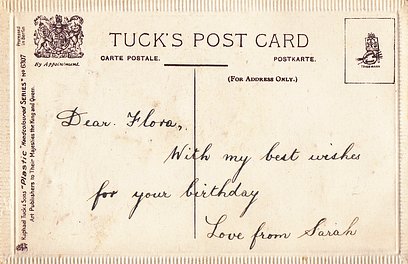 TUCK'S POST CARD
CARTE POSTALE. POSTKARTE.
(FOR ADDRESS ONLY.)
By Appointment.
Processed in Berlin
Raphael Tuck & Sons' "Plastic" Handcoloured SERIES" No 6107
Art Publishers to Their Majesties the King and Queen.
Dear Flora,
With my best wishes
for your birthday
Love from Sarah